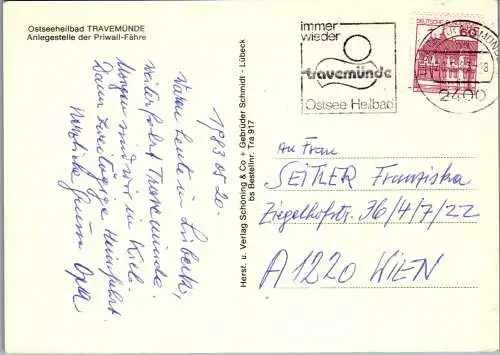 Ostseeheilbad TRAVEMÜNDE
Anlegestelle der Priwall-Fähre
1983 05 20.
Waren heute in Lübeck,
weiterfahrt Travemünde.
Morgen sind wir in Kiel.
Dann zweitägige Heimfahrt.
Herzliche Grüße Opa
Herst. u. Verlag Schöning & Co + Gebrüder Schmidt - Lübeck
bs Bestellnr. Tra 917
immer
wieder
travemünde
Ostsee Heilbad
DEUTSCHE
60
TRAVEMÜNDE
18
2400
An Frau
SEITLER Franziska
Ziegelhofstr. 36/4/7/22
A 1220 WIEN